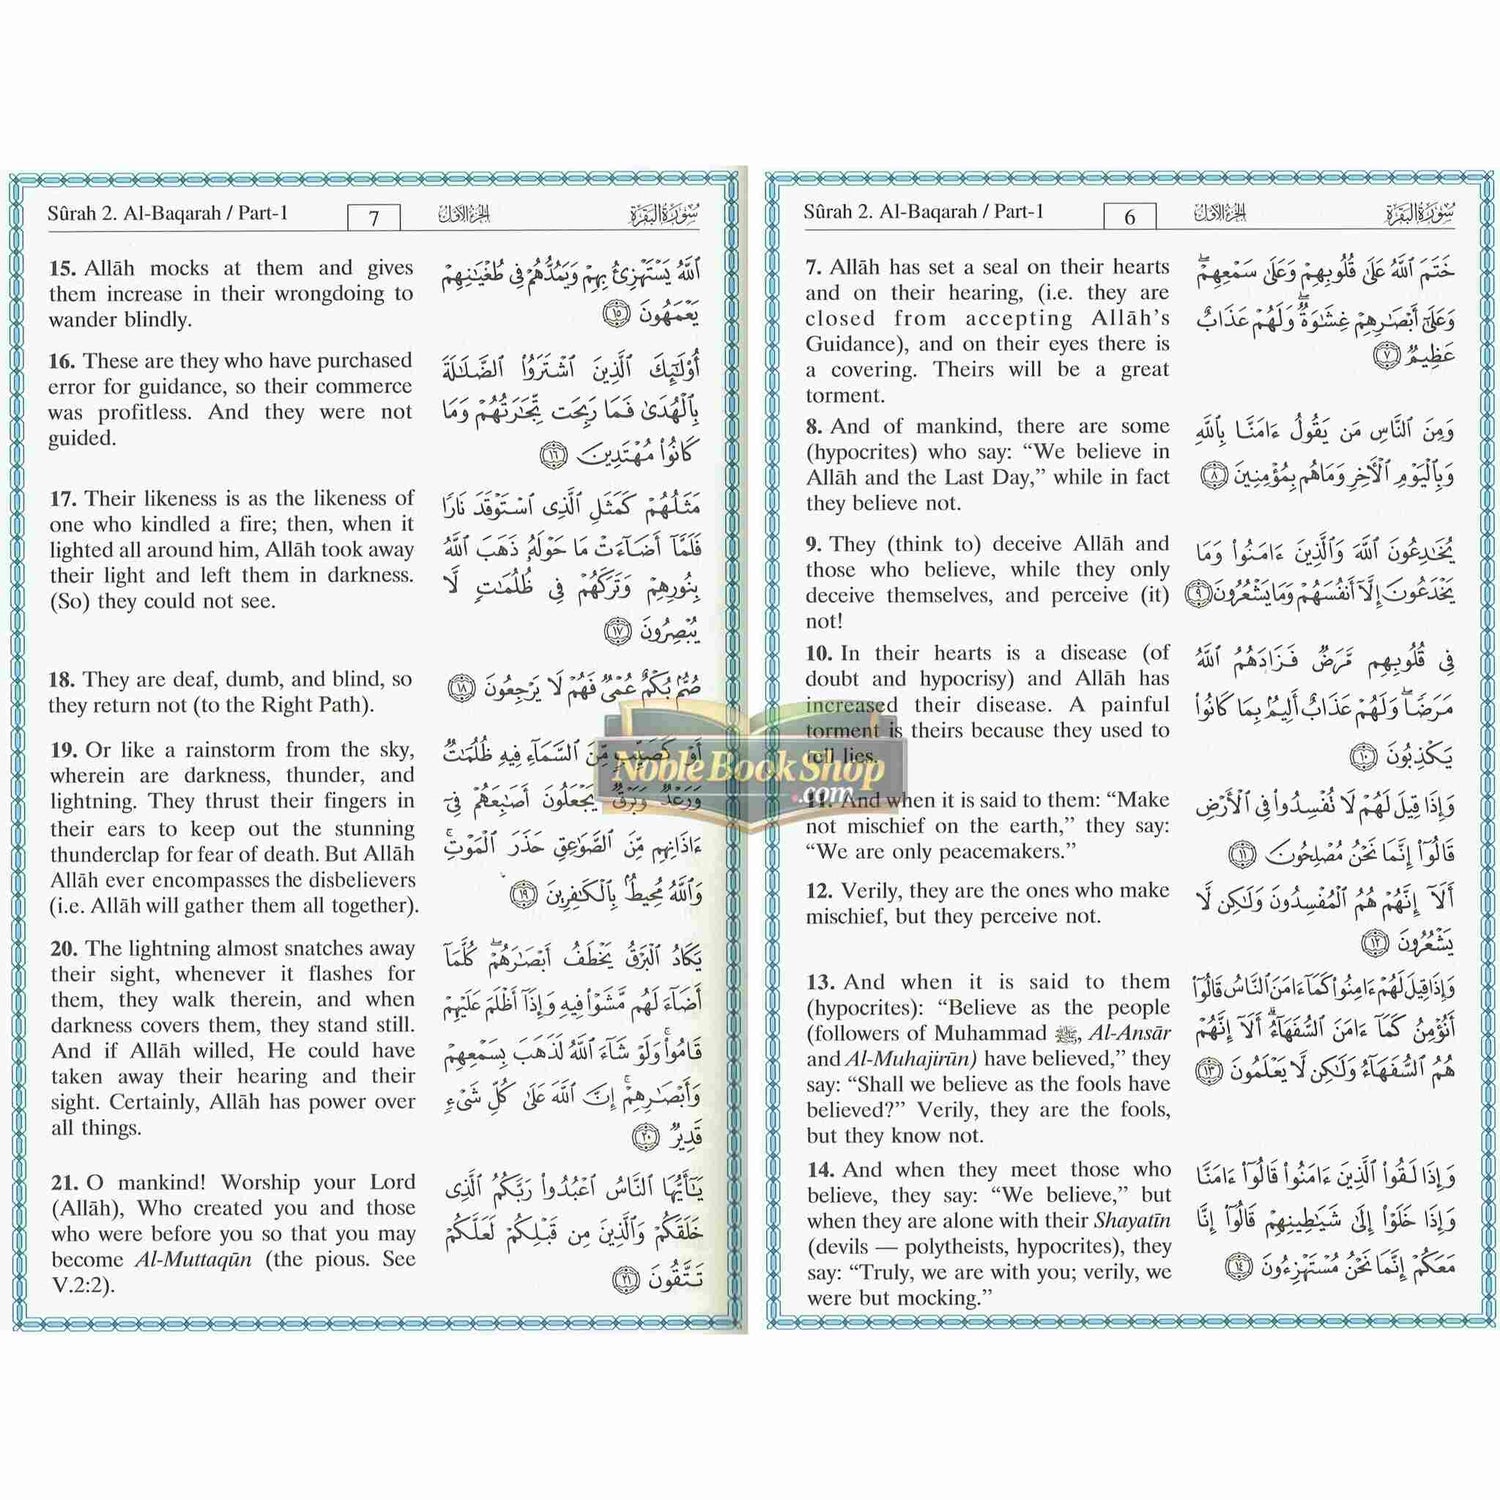 Sûrah 2. Al-Baqarah / Part-1
6
الجزء الأول
سورة البقرة
7. Allāh has set a seal on their hearts
and on their hearing, (i.e. they are
closed from accepting Allāh’s
Guidance), and on their eyes there is
a covering. Theirs will be a great
torment.
خَتَمَ ٱللَّهُ عَلَىٰ قُلُوبِهِمْ وَعَلَىٰ سَمْعِهِمْۖ
وَعَلَىٰٓ أَبْصَٰرِهِمْ غِشَٰوَةٌۖ وَلَهُمْ عَذَابٌ
عَظِيمٌ ٧
8. And of mankind, there are some
(hypocrites) who say: “We believe in
Allāh and the Last Day,” while in fact
they believe not.
وَمِنَ ٱلنَّاسِ مَن يَقُولُ ءَامَنَّا بِٱللَّهِ
وَبِٱلْيَوْمِ ٱلْءَاخِرِ وَمَا هُم بِمُؤْمِنِينَ ٨
9. They (think to) deceive Allāh and
those who believe, while they only
deceive themselves, and perceive (it)
not!
يُخَٰدِعُونَ ٱللَّهَ وَٱلَّذِينَ ءَامَنُوا۟ وَمَا
يَخْدَعُونَ إِلَّآ أَنفُسَهُمْ وَمَا يَشْعُرُونَ ٩
10. In their hearts is a disease (of
doubt and hypocrisy) and Allāh has
increased their disease. A painful
torment is theirs because they used to
tell lies.
فِى قُلُوبِهِم مَّرَضٌ فَزَادَهُمُ ٱللَّهُ
مَرَضًاۖ وَلَهُمْ عَذَابٌ أَلِيمٌۢ بِمَا كَانُوا۟
يَكْذِبُونَ ١٠
11. And when it is said to them: “Make
not mischief on the earth,” they say:
“We are only peacemakers.”
وَإِذَا قِيلَ لَهُمْ لَا تُفْسِدُوا۟ فِى ٱلْأَرْضِ
قَالُوٓا۟ إِنَّمَا نَحْنُ مُصْلِحُونَ ١١
12. Verily, they are the ones who make
mischief, but they perceive not.
أَلَآ إِنَّهُمْ هُمُ ٱلْمُفْسِدُونَ وَلَٰكِن لَّا
يَشْعُرُونَ ١٢
13. And when it is said to them
(hypocrites): “Believe as the people
(followers of Muhammad ﷺ, Al-Ansār
and Al-Muhajirūn) have believed,” they
say: “Shall we believe as the fools have
believed?” Verily, they are the fools,
but they know not.
وَإِذَا قِيلَ لَهُمْ ءَامِنُوا۟ كَمَآ ءَامَنَ ٱلنَّاسُ قَالُوٓا۟
أَنُؤْمِنُ كَمَآ ءَامَنَ ٱلسُّفَهَآءُۗ أَلَآ إِنَّهُمْ
هُمُ ٱلسُّفَهَآءُ وَلَٰكِن لَّا يَعْلَمُونَ ١٣
14. And when they meet those who
believe, they say: “We believe,” but
when they are alone with their Shayatīn
(devils — polytheists, hypocrites), they
say: “Truly, we are with you; verily, we
were but mocking.”
وَإِذَا لَقُوا۟ ٱلَّذِينَ ءَامَنُوا۟ قَالُوٓا۟ ءَامَنَّا
وَإِذَا خَلَوْا۟ إِلَىٰ شَيَٰطِينِهِمْ قَالُوٓا۟ إِنَّا
مَعَكُمْ إِنَّمَا نَحْنُ مُسْتَهْزِءُونَ ١٤
Sûrah 2. Al-Baqarah / Part-1
7
الجزء الأول
سورة البقرة
15. Allāh mocks at them and gives
them increase in their wrongdoing to
wander blindly.
ٱللَّهُ يَسْتَهْزِئُ بِهِمْ وَيَمُدُّهُمْ فِى طُغْيَٰنِهِمْ
يَعْمَهُونَ ١٥
16. These are they who have purchased
error for guidance, so their commerce
was profitless. And they were not
guided.
أُو۟لَٰٓئِكَ ٱلَّذِينَ ٱشْتَرَوُا۟ ٱلضَّلَٰلَةَ
بِٱلْهُدَىٰ فَمَا رَبِحَت تِّجَٰرَتُهُمْ وَمَا
كَانُوا۟ مُهْتَدِينَ ١٦
17. Their likeness is as the likeness of
one who kindled a fire; then, when it
lighted all around him, Allāh took away
their light and left them in darkness.
(So) they could not see.
مَثَلُهُمْ كَمَثَلِ ٱلَّذِى ٱسْتَوْقَدَ نَارًا
فَلَمَّآ أَضَآءَتْ مَا حَوْلَهُۥ ذَهَبَ ٱللَّهُ
بِنُورِهِمْ وَتَرَكَهُمْ فِى ظُلُمَٰتٍ لَّا
يُبْصِرُونَ ١٧
18. They are deaf, dumb, and blind, so
they return not (to the Right Path).
صُمٌّۢ بُكْمٌ عُمْىٌ فَهُمْ لَا يَرْجِعُونَ ١٨
19. Or like a rainstorm from the sky,
wherein are darkness, thunder, and
lightning. They thrust their fingers in
their ears to keep out the stunning
thunderclap for fear of death. But Allāh
Allāh ever encompasses the disbelievers
(i.e. Allāh will gather them all together).
أَوْ كَصَيِّبٍ مِّنَ ٱلسَّمَآءِ فِيهِ ظُلُمَٰتٌ
وَرَعْدٌ وَبَرْقٌ يَجْعَلُونَ أَصَٰبِعَهُمْ فِىٓ
ءَاذَانِهِم مِّنَ ٱلصَّوَٰعِقِ حَذَرَ ٱلْمَوْتِۚ
وَٱللَّهُ مُحِيطٌۢ بِٱلْكَٰفِرِينَ ١٩
20. The lightning almost snatches away
their sight, whenever it flashes for
them, they walk therein, and when
darkness covers them, they stand still.
And if Allāh willed, He could have
taken away their hearing and their
sight. Certainly, Allāh has power over
all things.
يَكَادُ ٱلْبَرْقُ يَخْطَفُ أَبْصَٰرَهُمْۖ كُلَّمَآ
أَضَآءَ لَهُم مَّشَوْا۟ فِيهِ وَإِذَآ أَظْلَمَ عَلَيْهِمْ
قَامُوا۟ۚ وَلَوْ شَآءَ ٱللَّهُ لَذَهَبَ بِسَمْعِهِمْ
وَأَبْصَٰرِهِمْۚ إِنَّ ٱللَّهَ عَلَىٰ كُلِّ شَىْءٍ
قَدِيرٌ ٢٠
21. O mankind! Worship your Lord
(Allāh), Who created you and those
who were before you so that you may
become Al-Muttaqūn (the pious. See
V.2:2).
يَٰٓأَيُّهَا ٱلنَّاسُ ٱعْبُدُوا۟ رَبَّكُمُ ٱلَّذِى
خَلَقَكُمْ وَٱلَّذِينَ مِن قَبْلِكُمْ لَعَلَّكُمْ
تَتَّقُونَ ٢١
NobleBookShop
.com